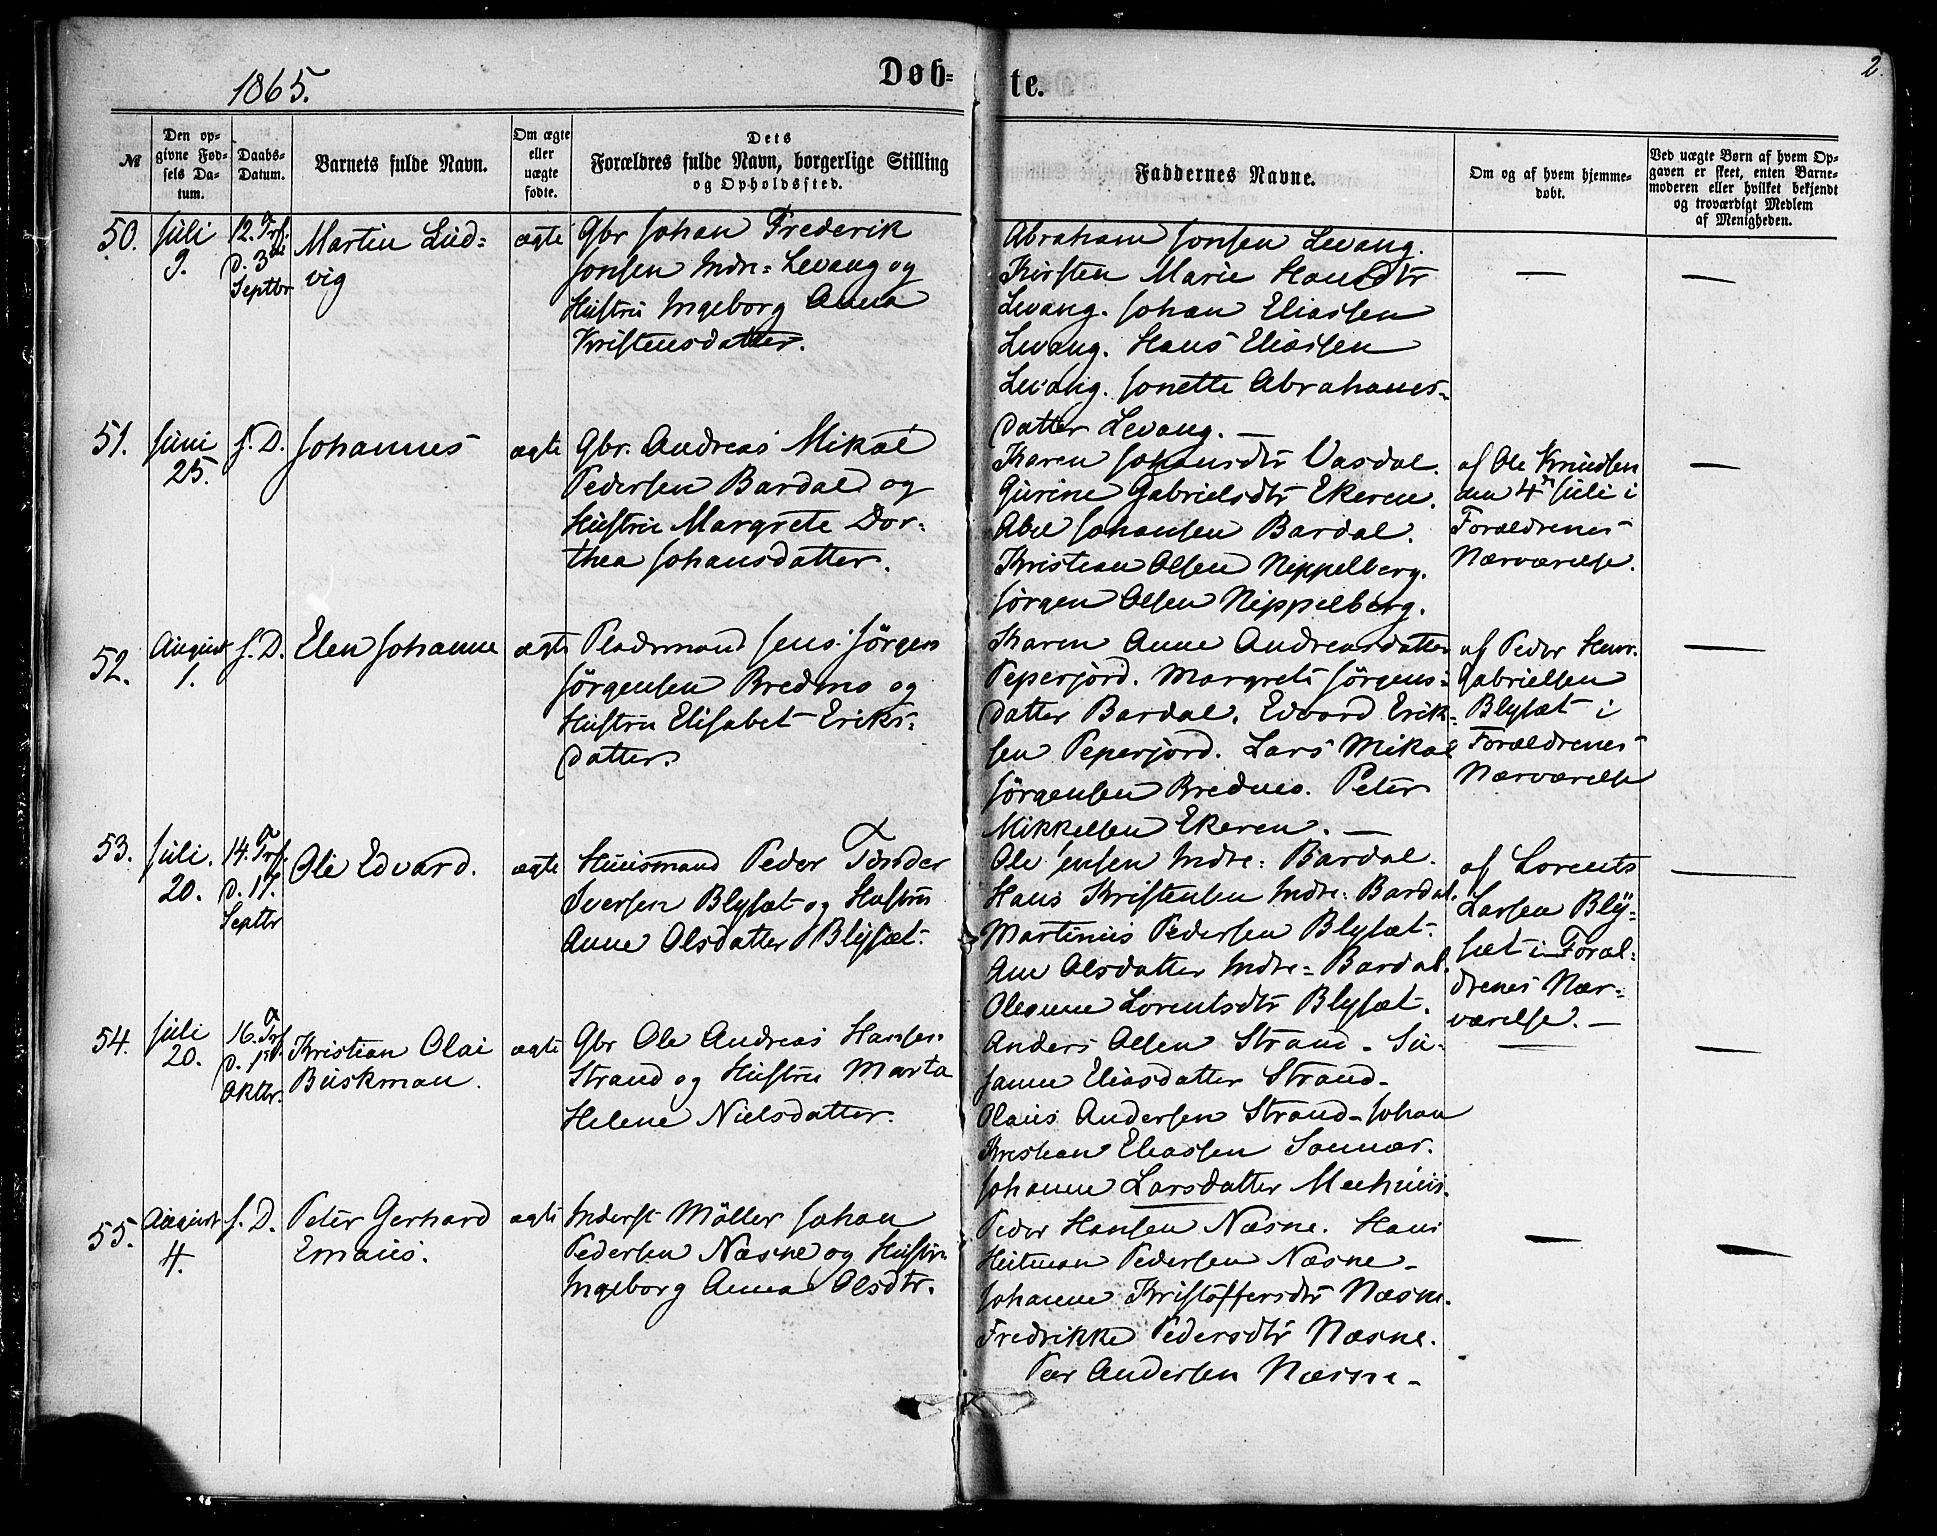 1865.
Døb-
te.
2.
№
Den op-
givne Fød-
sels Da-
tum.
Daabs-
Datum.
Barnets fulde Navn.
Om ægte
eller
uægte
fødte.
Dets
Forældres fulde Navn, borgerlige Stilling
og Opholdssted.
Faddernes Navne.
Om og af hvem hjemme-
døbt.
Ved uægte Børn af hvem Op-
gaven er skeet, enten Barne-
moderen eller hvilket bekjendt
og troværdigt Medlem
af Menigheden.
50.
Juli
9.
12. S. e. Trf.
d. 3die
Septbr
Martin Lud-
vig
ægte
Gbr Johan Frederik
Jonsen Indre-Levang og
Hustru Ingeborg Anna
Kristensdatter.
Abraham Jonsen Levang.
Kirsten Marie Hansdtr
Levang. Johan Eliassen
Levang. Hans Eliassen
Levang. Jonette Abrahams-
datter Levang. —
—
—
51.
Juni
25.
s. D.
Johannes
ægte
Gbr. Andreas Mikal
Pedersen Bardal og
Hustru Margrete Dor-
thea Johansdatter.
Karen Johansdtr Vasdal.
Gurine Gabrielsdtr Ekeren.
Abel Johansen Bardal.
Kristian Olsen Nippelberg.
Jørgen Olsen Nippelberg.
af Ole Knudsen
den 4de Juli i
Forældrenes
Nærværelse.
—
52.
August
1.
s. D.
Elen Johanne
ægte
Pladsmand Jens Jørgen
Jørgensen Bredmo og
Hustru Elisabet Eriks-
datter.
Karen Anne Andreasdatter
Peperjord. Margrete Jørgens-
datter Bardal. Edvard Erik-
sen Peperjord. Lars Mikal
Jørgensen Bredmo. Peter
Mikkelsen Ekeren. —
af Peder Henr.
Gabrielsen
Blysæt i
Forældrenes
Nærværelse
—
53.
Juli.
20.
14. Trf.
d. 17.
Septbr
Ole Edvard.
ægte
Huusmand Peder Tønder
Iversen Blysæt og Hustru
Anne Olsdatter Blysæt.
Ole Jensen Indre-Bardal.
Hans Kristensen Indre-Bardal.
Martinus Pedersen Blysæt.
Ane Olsdatter Indre-Bardal.
Oleanne Lorentsdtr Blysæt.
af Lorents
Larsen Bly-
sæt i Foræl-
drenes Nær-
værelse. —
—
54.
Juli
20.
16. Trf
d. 1ste
Oktbr.
Kristian Olai
Buskman.
ægte
Gbr Ole Andreas Hansen
Strand og Hustru Marta
Helene Nielsdatter.
Anders Olsen Strand - Su-
sanne Eliasdatter Strand-
Olaus Andersen Strand - Johan
Kristian Eliassen
Johanne Larsdatter
—
—
55.
August
4.
s. D.
Peter Gerhard
Emaus.
ægte
Inderst Møller Johan
Pedersen Næsne og Hustru
Ingeborg Anna Olsdtr.
Peder Hansen Næsne. Hans
Heitman Pedersen Næsne -
Johanne Kristoffersdtr Næsne.
Fredrikke Pedersdtr Næsne.
Peer Andersen Næsne -
—
—